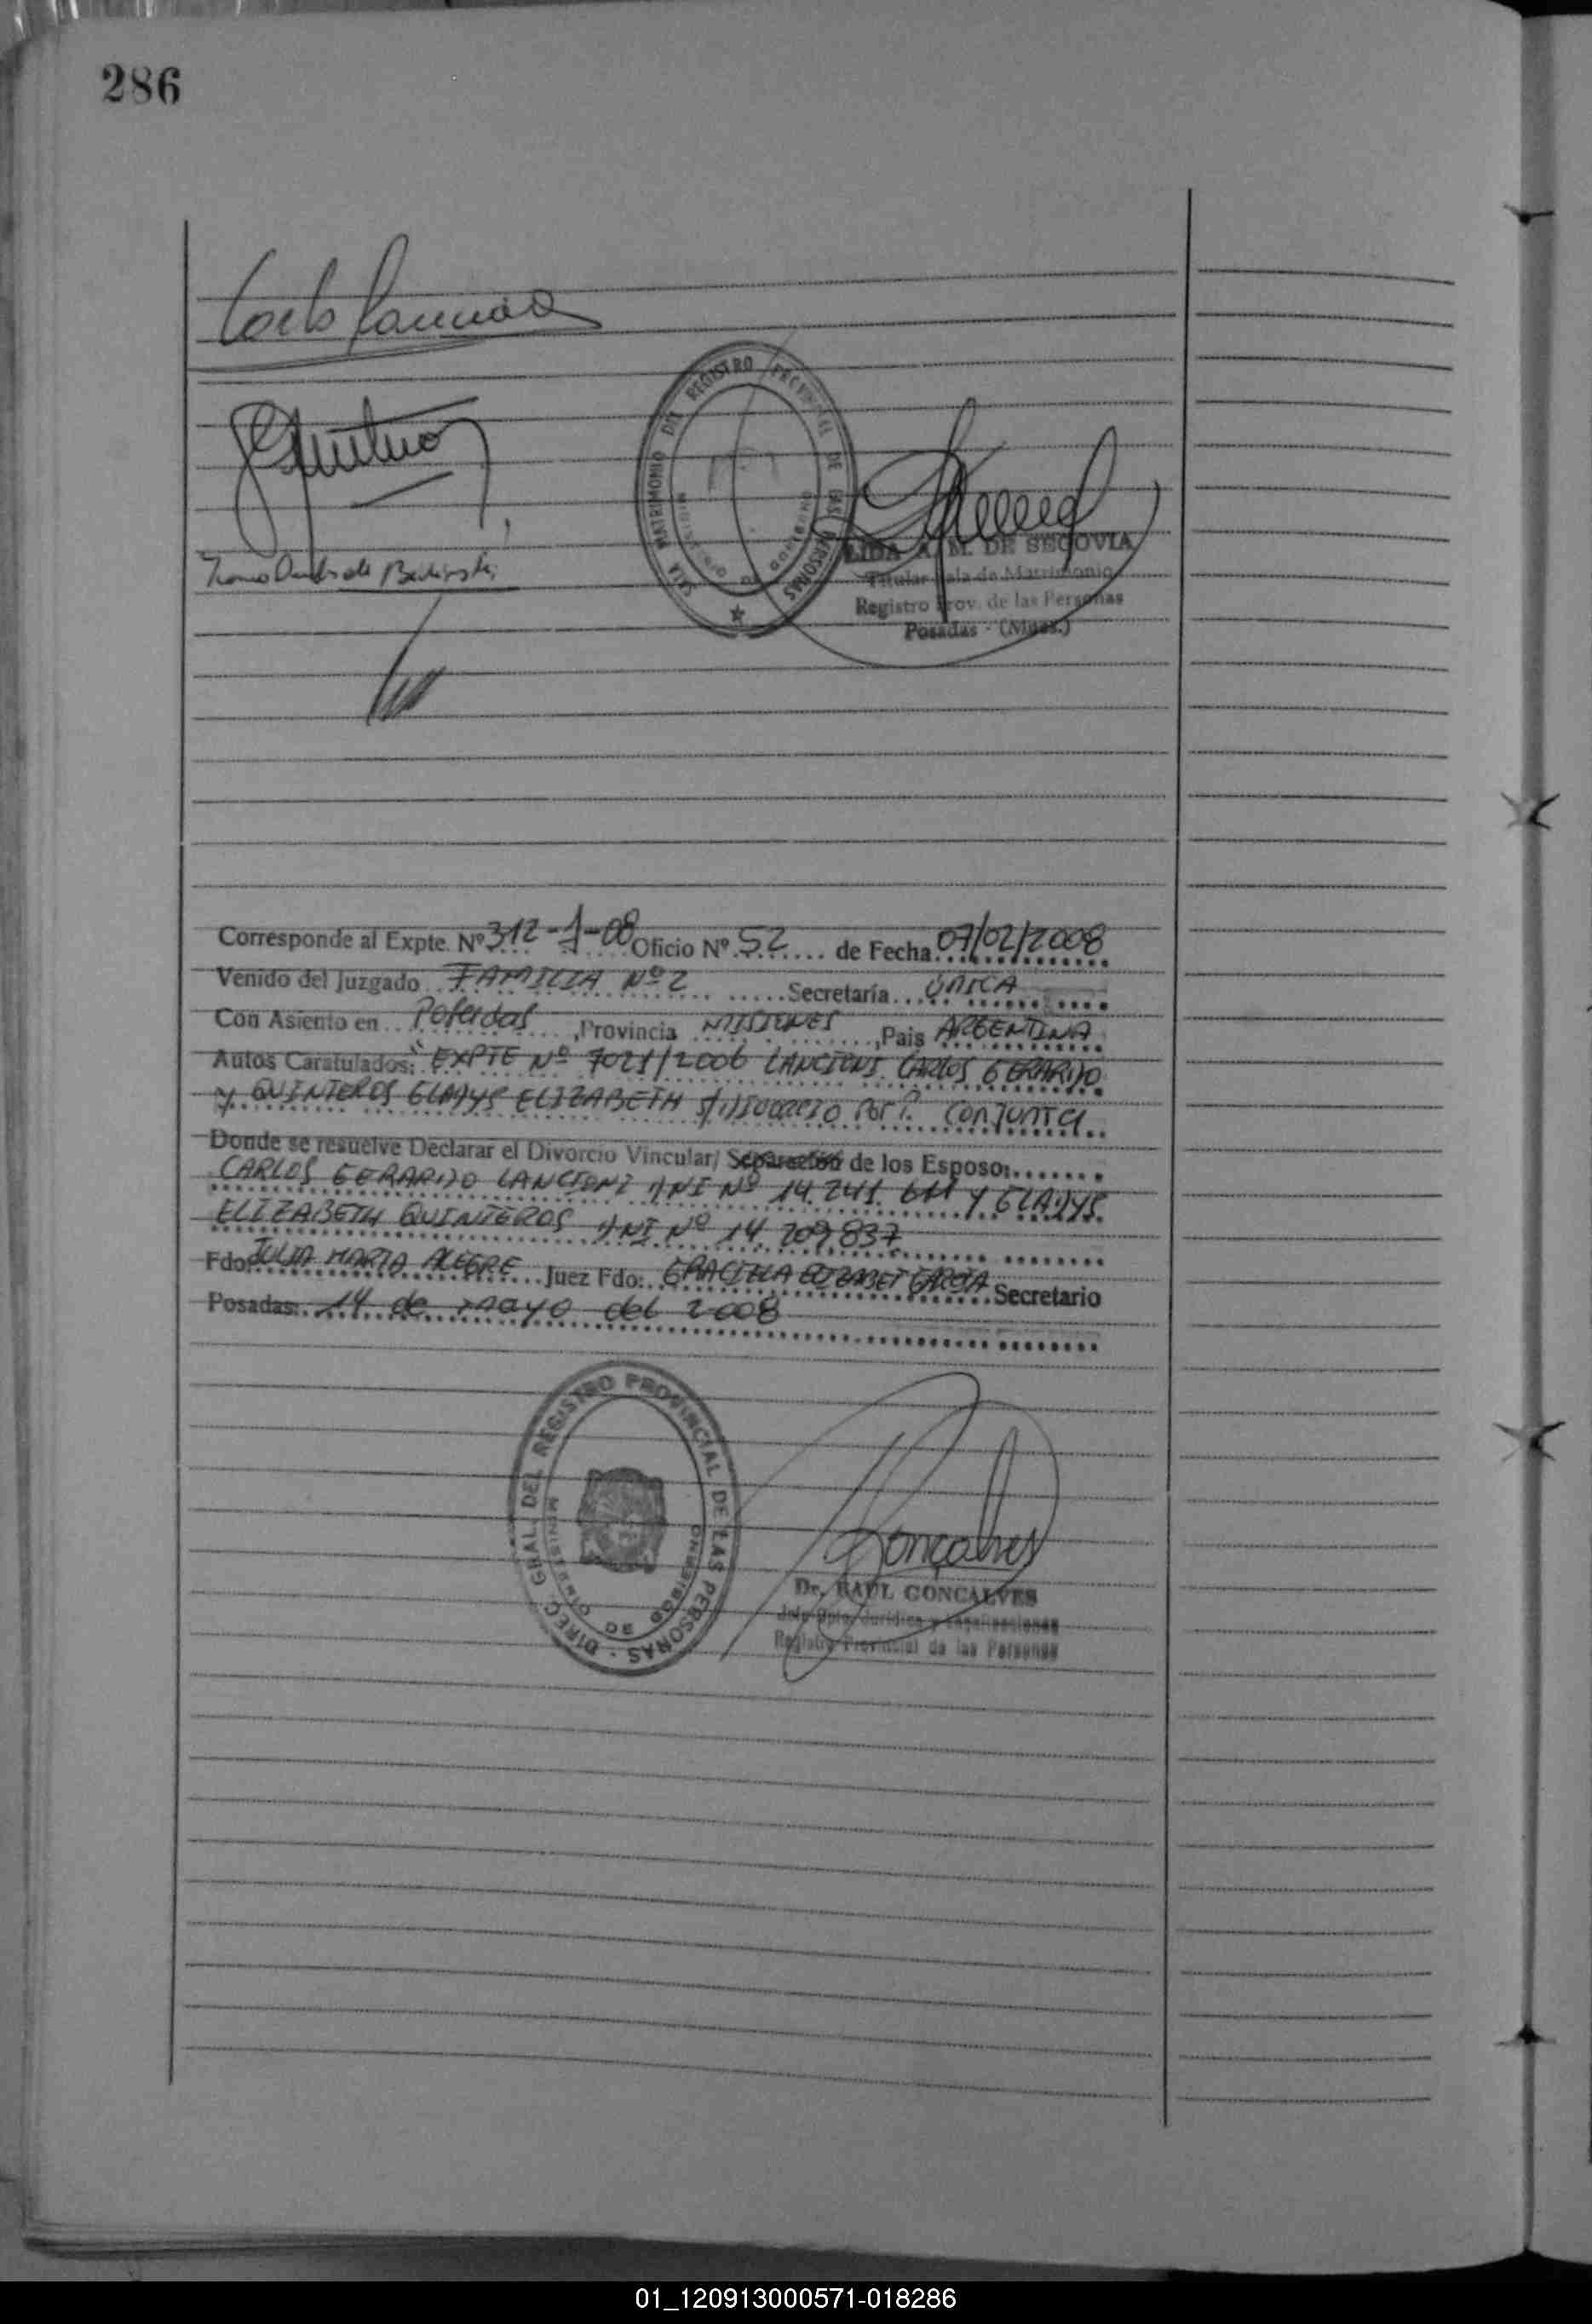 286
SALA MATRIMONIO DEL REGISTRO PROVINCIAL DE LAS PERSONAS
LIDA A. M. DE SEGOVIA
Titular Sala de Matrimonio
Registro Prov. de las Personas
Posadas - (Mnes.)
Corresponde al Expte. Nº 312-1-08 Oficio Nº 52 de Fecha 07/02/2008
Venido del Juzgado FAMILIA Nº 2 Secretaría ÚNICA
Con Asiento en Posadas, Provincia MISIONES, Pais ARGENTINA
Autos Caratulados: "EXPTE Nº 7021/2006 LANCIONI CARLOS GERARDO
y QUINTEROS GLADYS ELIZABETH s/DIVORCIO POR P. CONJUNTA
Donde se resuelve Declarar el Divorcio Vincular/ Separación de los Esposo:
CARLOS GERARDO LANCIONI DNI Nº 14.241.611 Y GLADYS
ELIZABETH QUINTEROS DNI Nº 14.209837
Fdo: JULIA MARTA ALEGRE Juez Fdo: GRACIELA ELIZABET GARCIA Secretario
Posadas: 14 de mayo del 2008
DIREC. GRAL. DEL REGISTRO PROVINCIAL DE LAS PERSONAS
MINISTERIO DE GOBIERNO
Gonçalves
Dr. RAUL GONCALVES
Jefe Dpto. Jurídico y
Registro Provincial de las Personas
01_120913000571-018286